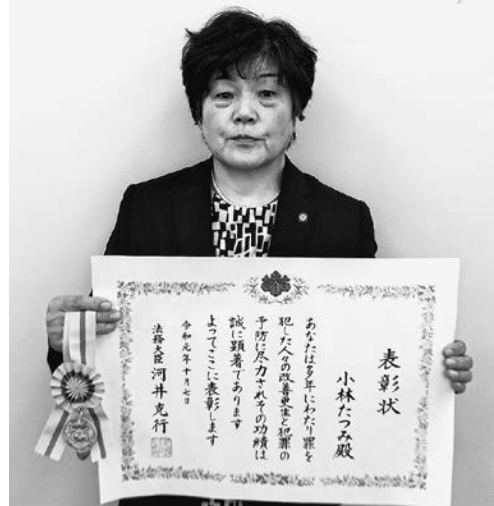 表彰状
小林たつみ殿
あなたは多年にわたり罪を
犯した人々の改善更生と犯罪の
予防に尽力されその功績は
誠に顕著であります
よってここに表彰します
令和元年十月七日
法務大臣 河井克行